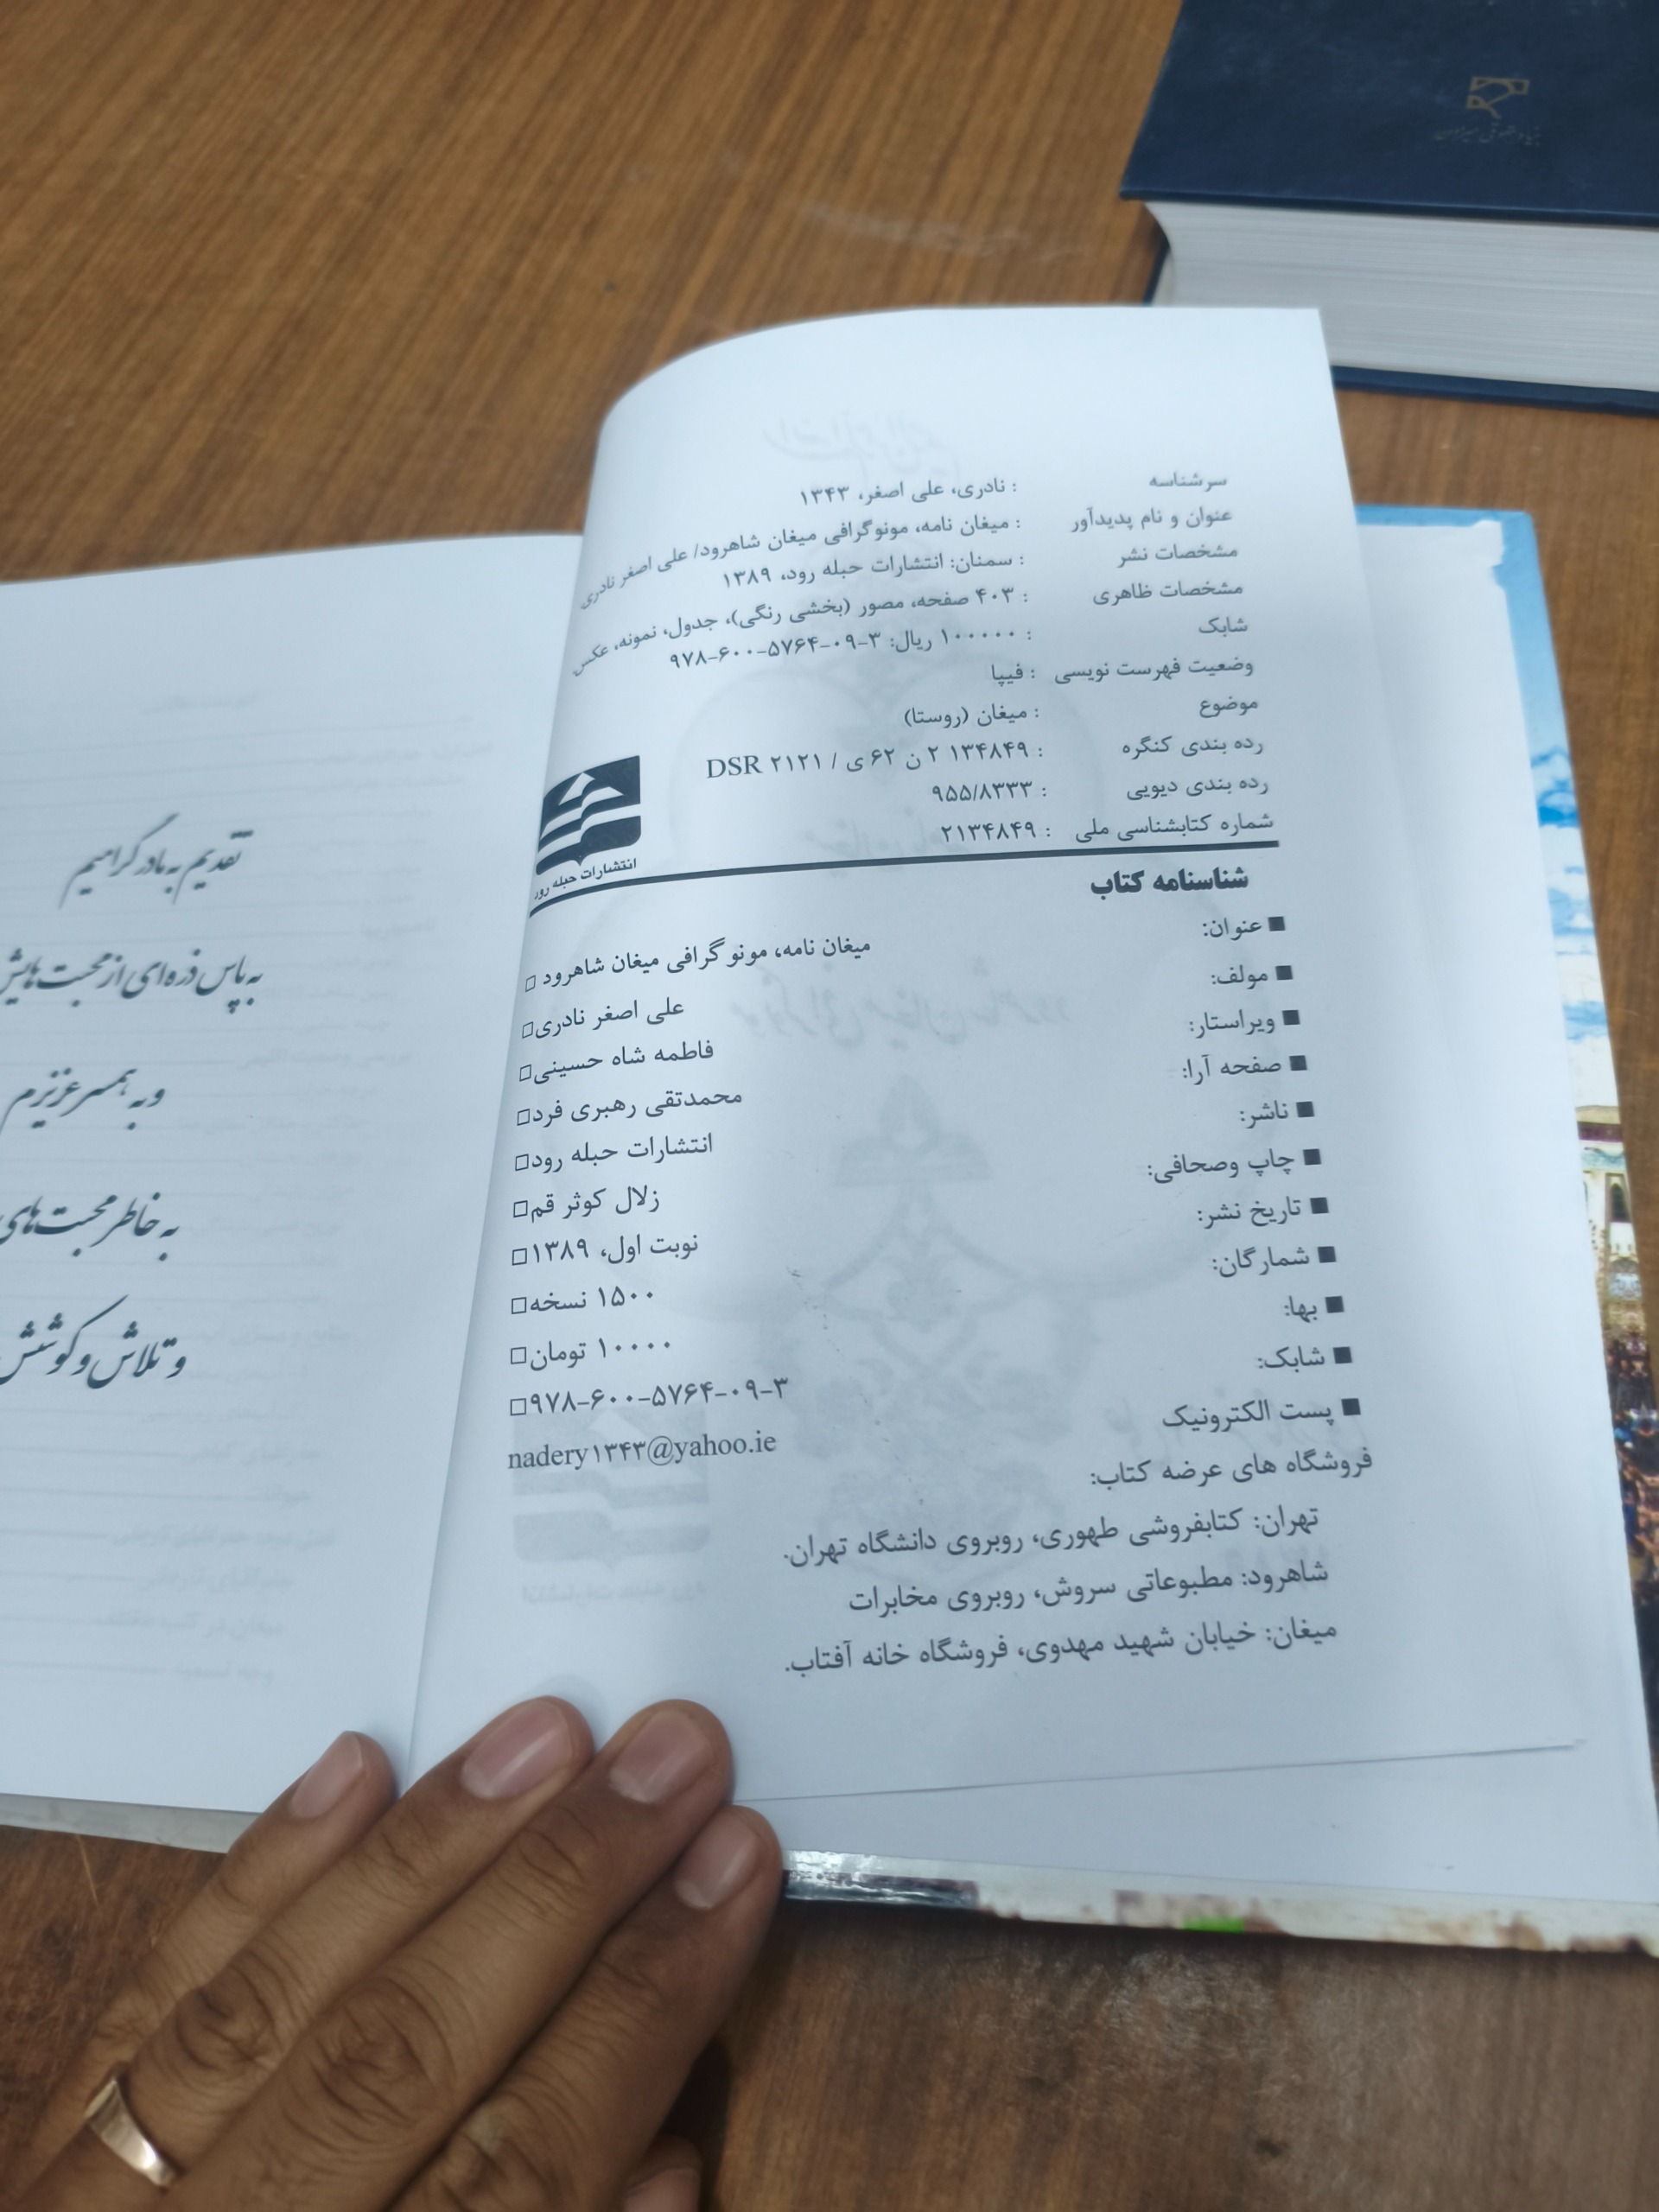 سرشناسه : نادری، علی اصغر، ۱۳۴۳
عنوان و نام پدیدآور : میغان نامه، مونوگرافی میغان شاهرود/ علی اصغر نادری
مشخصات نشر : سمنان: انتشارات حبله رود، ۱۳۸۹
مشخصات ظاهری : ۴۰۳ صفحه، مصور (بخشی رنگی)، جدول، نمونه، عکس
شابک : ۱۰۰۰۰۰ ریال: ۳-۰۹-۵۷۶۴-۶۰۰-۹۷۸
وضعیت فهرست نویسی : فیپا
موضوع : میغان (روستا)
رده بندی کنگره : ۱۳۴۸۴۹ ۲ ن ۶۲ ی / ۲۱۲۱ DSR
رده بندی دیویی : ۹۵۵/۸۳۳۳
شماره کتابشناسی ملی : ۲۱۳۴۸۴۹
انتشارات حبله رود
شناسنامه کتاب
■ عنوان: میغان نامه، مونو گرافی میغان شاهرود □
■ مولف: علی اصغر نادری□
■ ویراستار: فاطمه شاه حسینی□
■ صفحه آرا: محمدتقی رهبری فرد□
■ ناشر: انتشارات حبله رود□
■ چاپ وصحافی: زلال کوثر قم□
■ تاریخ نشر: نوبت اول، ۱۳۸۹□
■ شمارگان: ۱۵۰۰ نسخه□
■ بها: ۱۰۰۰۰ تومان□
■ شابک: ۹۷۸-۶۰۰-۵۷۶۴-۰۹-۳□
■ پست الکترونیک nadery۱۳۴۳@yahoo.ie
فروشگاه های عرضه کتاب:
تهران: کتابفروشی طهوری، روبروی دانشگاه تهران.
شاهرود: مطبوعاتی سروش، روبروی مخابرات
میغان: خیابان شهید مهدوی، فروشگاه خانه آفتاب.
تقدیم به مادر گرامیم
به پاس ذره‌ای از محبت‌هایش
و به همسر عزیزم
به خاطر محبت‌های
و تلاش و کوشش